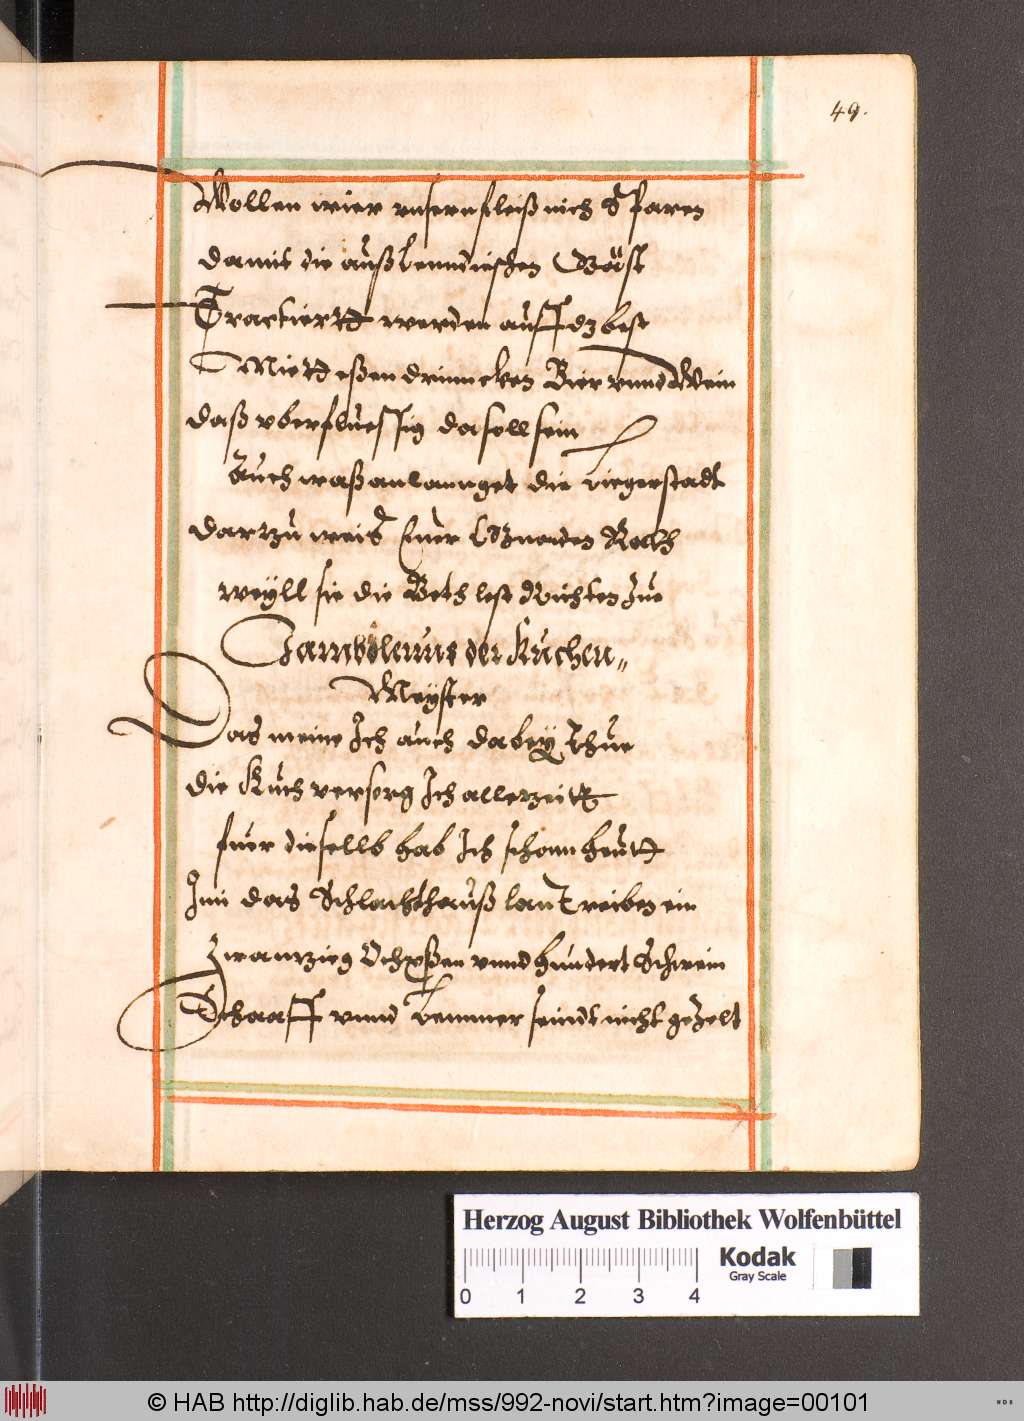 49.
Wollen wier vnsern fleiß nich Sparen
damit die außlenndieschen Gäst
Tractiertt werden auff dz best
Mitt eßen drinncken Bier vnnd Wein
daß vberfluessig da soll sein
Auch waß anlannget die Liegerstadt
dartzu weis Euer Gznaden Rath
weyll sie die Beth lest Richten zue
Jambolenus der Kuchen„
Meyster
Das meine Ich auch dabey Thue
die Kuch versorg Ich allerzeitt
fuer dieselb hab Ich schonn heutt
Inn das Schlachthauß lan Treiben ein
Zwanntzieg Ochßen vnnd hundert Schwein
Schaaff vnnd Lemmer seindt nicht gezelt
Herzog August Bibliothek Wolfenbüttel
Kodak
Gray Scale
0 1 2 3 4
© HAB http://diglib.hab.de/mss/992-novi/start.htm?image=00101